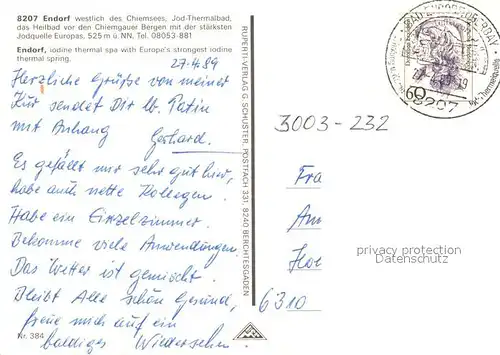 8207 Endorf westlich des Chiemsees, Jod-Thermalbad,
das Heilbad vor den Chiemgauer Bergen mit der stärksten
Jodquelle Europas, 525 m ü. NN. Tel. 08053-881
Endorf, iodine thermal spa with Europe's strongest iodine
thermal spring.
27.4.89
Herzliche Grüße von meiner
Kur sendet Dir lb. Patin
mit Anhang
Gerhard.
Es gefällt mir sehr gut hier,
habe auch nette Kollegen.
Habe ein Einzelzimmer.
Bekomme viele Anwendungen.
Das Wetter ist gemischt.
Bleibt Alle schön Gesund,
freue mich auf ein
baldiges Wiedersehen
Nr. 384
RUPERTI-VERLAG G. SCHUSTER, POSTFACH 331, 8240 BERCHTESGADEN
BAD ENDORF
60
8207
3003-232
Fra
Am
privacy protection
Datenschutz
6310